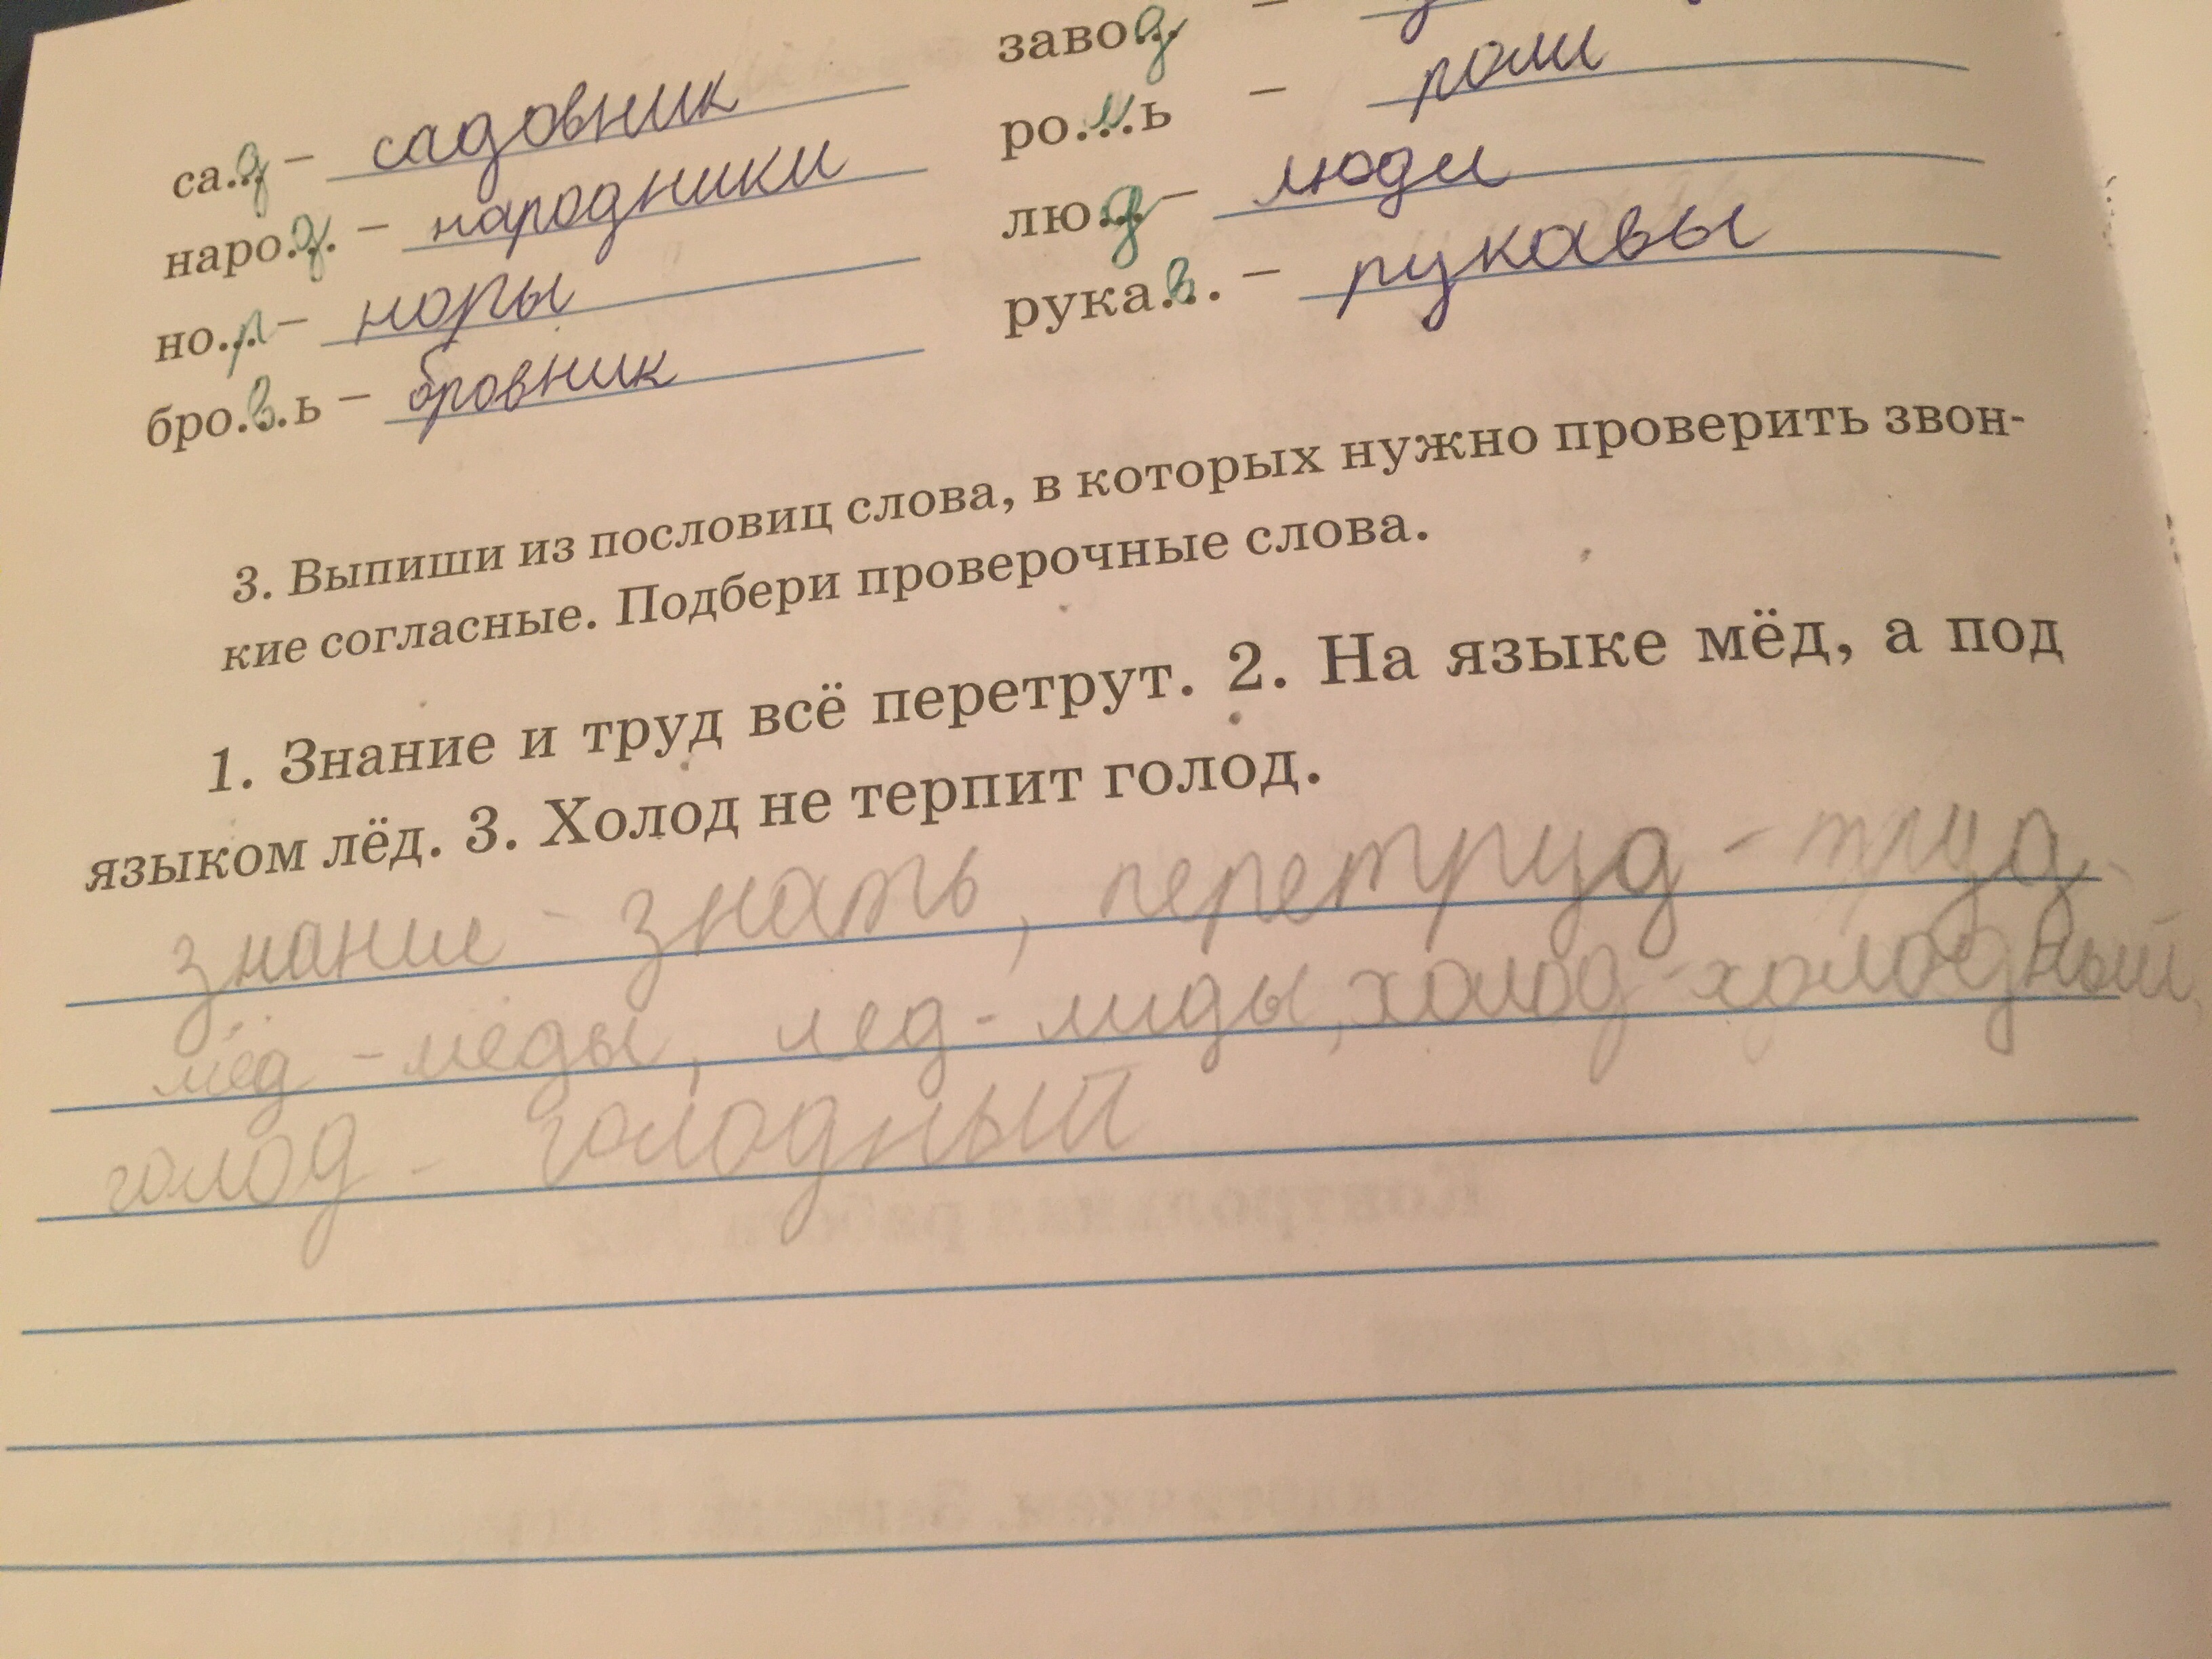 са.д. – садовник
наро.д. – народники
но.р. – норы
бро.в.ь – бровник
заво.д. –
ро.л.ь – роли
лю.д. – люди
рука.в. – рукавы
3. Выпиши из пословиц слова, в которых нужно проверить звон-
кие согласные. Подбери проверочные слова.
1. Знание и труд всё перетрут. 2. На языке мёд, а под
языком лёд. 3. Холод не терпит голод.
знание - знать, перетруд - труд,
мёд - меды, лед - лиды, холод - холодный,
голод - голодный